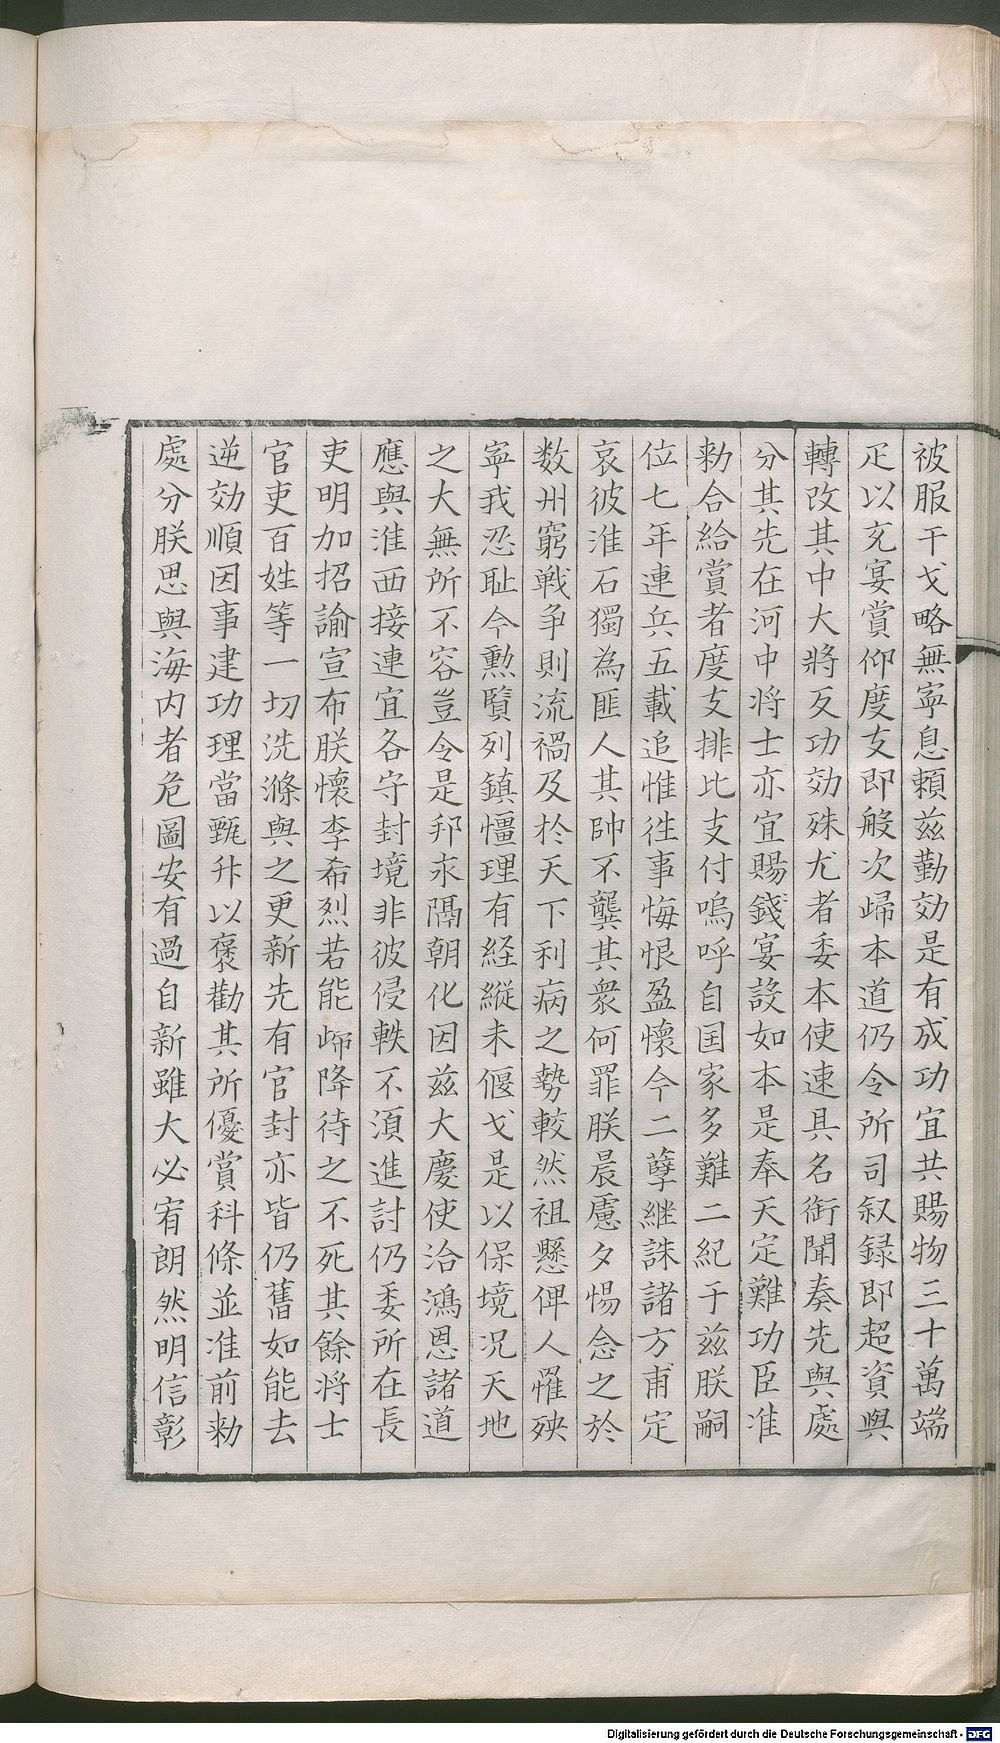 被服干戈略無寧息賴兹勤効是有成功宜共賜物三十萬端
疋以充宴賞仰度支即般次歸本道仍令所司叙録即超資與
轉改其中大將及功効殊尤者委本使速具名銜聞奏先與處
分其先在河中將士亦宜賜錢宴設如本是奉天定難功臣准
勑合給賞者度支排比支付嗚呼自国家多難二紀于兹朕嗣
位七年連兵五載追惟徃事悔恨盈懷今二孽継誅諸方甫定
哀彼淮右獨為匪人其帥不龔其衆何罪朕晨慮夕惕念之於
数州窮戦争則流禍及於天下利病之勢較然祖懸俾人罹殃
寜我忍耻今勲賢列鎮懂理有経縦未偃戈是以保境况天地
之大無所不容豈令是邦永隔朝化因兹大慶使洽鴻恩諸道
應與淮西接連宜各守封境非彼侵軼不湏進討仍委所在長
吏明加招諭宣布朕懷李希烈若能歸降待之不死其餘将士
官吏百姓等一切洗滌與之更新先有官封亦皆仍舊如能去
逆効順因事建功理當甄升以褒勸其所優賞科條並准前勑
處分朕思與海内者危圖安有過自新雖大必宥朗然明信彰
Digitalisierung gefördert durch die Deutsche Forschungsgemeinschaft - DFG